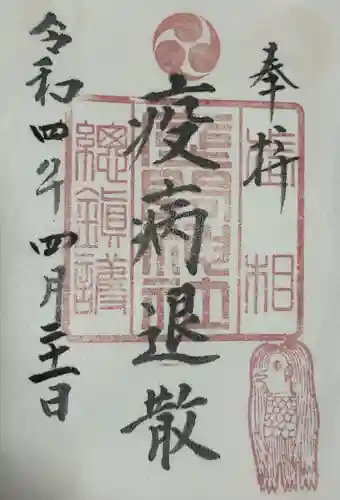 奉拝
疫病退散
令和四年四月二十一日
相
総鎮護